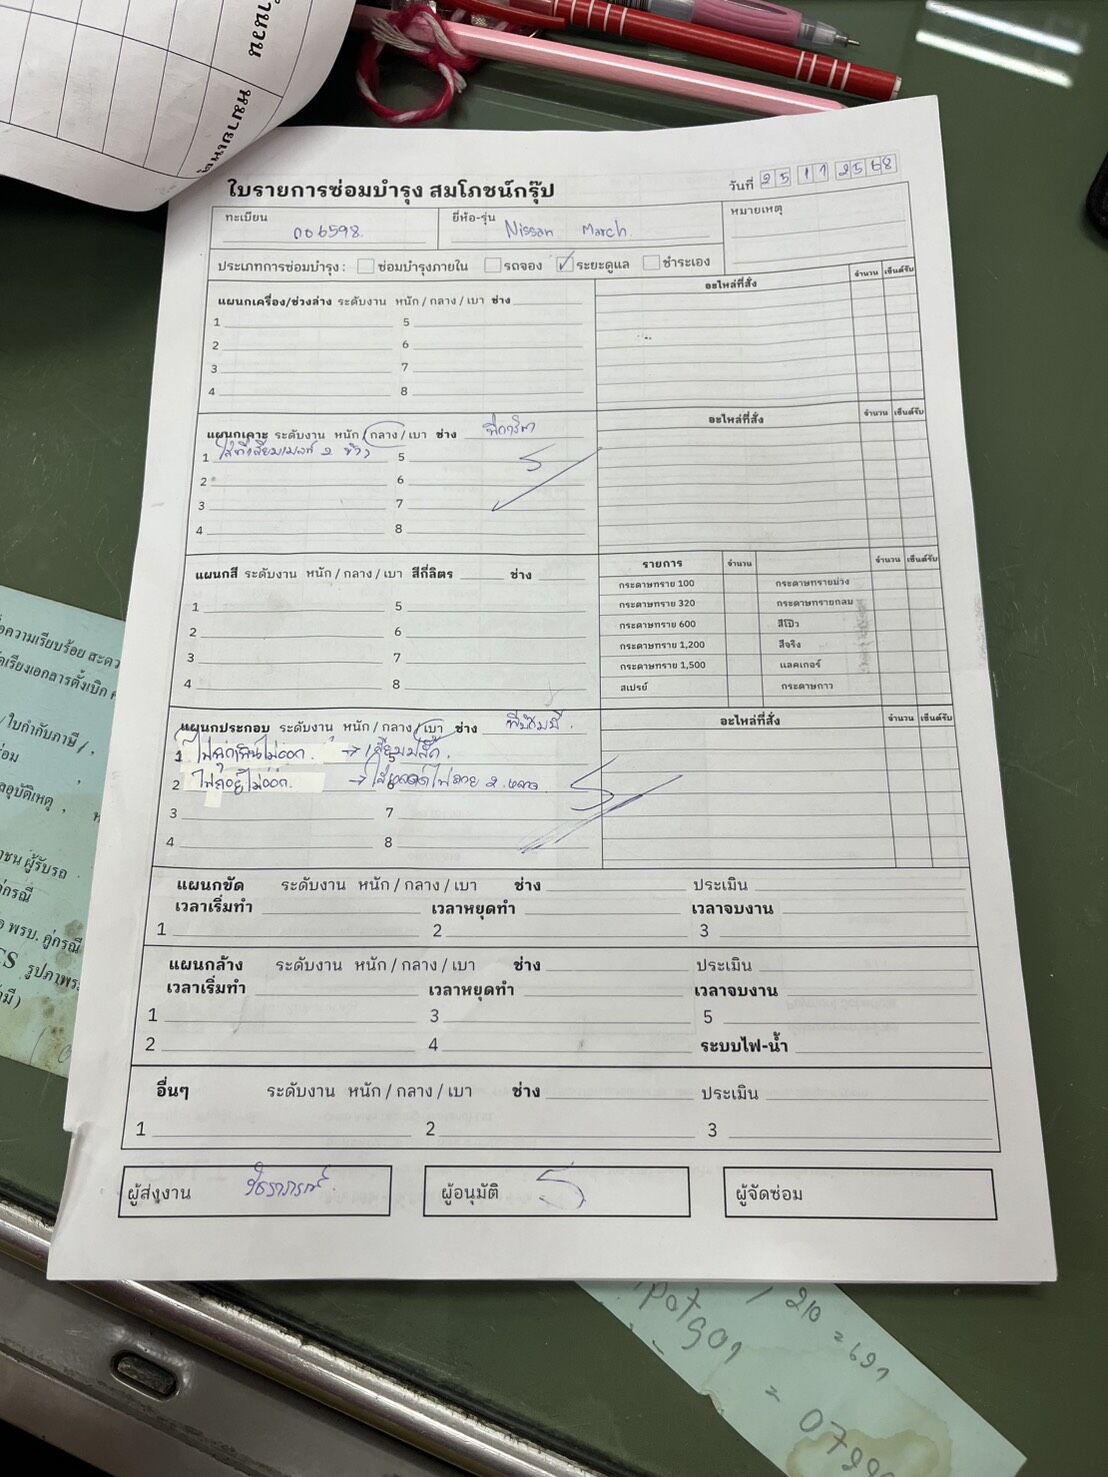 จำนวน
หมายเหตุ
ใบรายการซ่อมบำรุง สมโภชน์กรุ๊ป
วันที่ 25 11 2568
ทะเบียน
ยี่ห้อ-รุ่น Nissan March
หมายเหตุ
ประเภทการซ่อมบำรุง : ซ่อมบำรุงภายใน รถจอง ✓ ระยะดูแล ชำระเอง
แผนกเครื่อง/ช่วงล่าง ระดับงาน หนัก / กลาง / เบา ช่าง
อะไหล่ที่สั่ง จำนวน เซ็นต์รับ
1 5
2 6
3 7
4 8
แผนกเคาะ ระดับงาน หนัก / กลาง / เบา ช่าง
อะไหล่ที่สั่ง จำนวน เซ็นต์รับ
1 5
2 6
3 7
4 8
แผนกสี ระดับงาน หนัก / กลาง / เบา สีกี่ลิตร ช่าง
รายการ จำนวน จำนวน เซ็นต์รับ
กระดาษทราย 100 กระดาษทรายม่วง
กระดาษทราย 320 กระดาษทรายกลม
กระดาษทราย 600 สีโป๊ว
กระดาษทราย 1,200 สีจริง
กระดาษทราย 1,500 แลคเกอร์
สเปรย์ กระดาษกาว
1 5
2 6
3 7
4 8
แผนกประกอบ ระดับงาน หนัก / กลาง / เบา ช่าง
อะไหล่ที่สั่ง จำนวน เซ็นต์รับ
1 ไฟฉุกเฉินไม่ออก. → เสียบปลั๊ก.
2 ไฟถอยไม่ออก. →
3 7
4 8
แผนกขัด ระดับงาน หนัก / กลาง / เบา ช่าง ประเมิน
เวลาเริ่มทำ เวลาหยุดทำ เวลาจบงาน
1 2 3
แผนกล้าง ระดับงาน หนัก / กลาง / เบา ช่าง ประเมิน
เวลาเริ่มทำ เวลาหยุดทำ เวลาจบงาน
1 3 5
2 4 ระบบไฟ-น้ำ
อื่นๆ ระดับงาน หนัก / กลาง / เบา ช่าง ประเมิน
1 2 3
ผู้ส่งงาน
ผู้อนุมัติ
ผู้จัดซ่อม